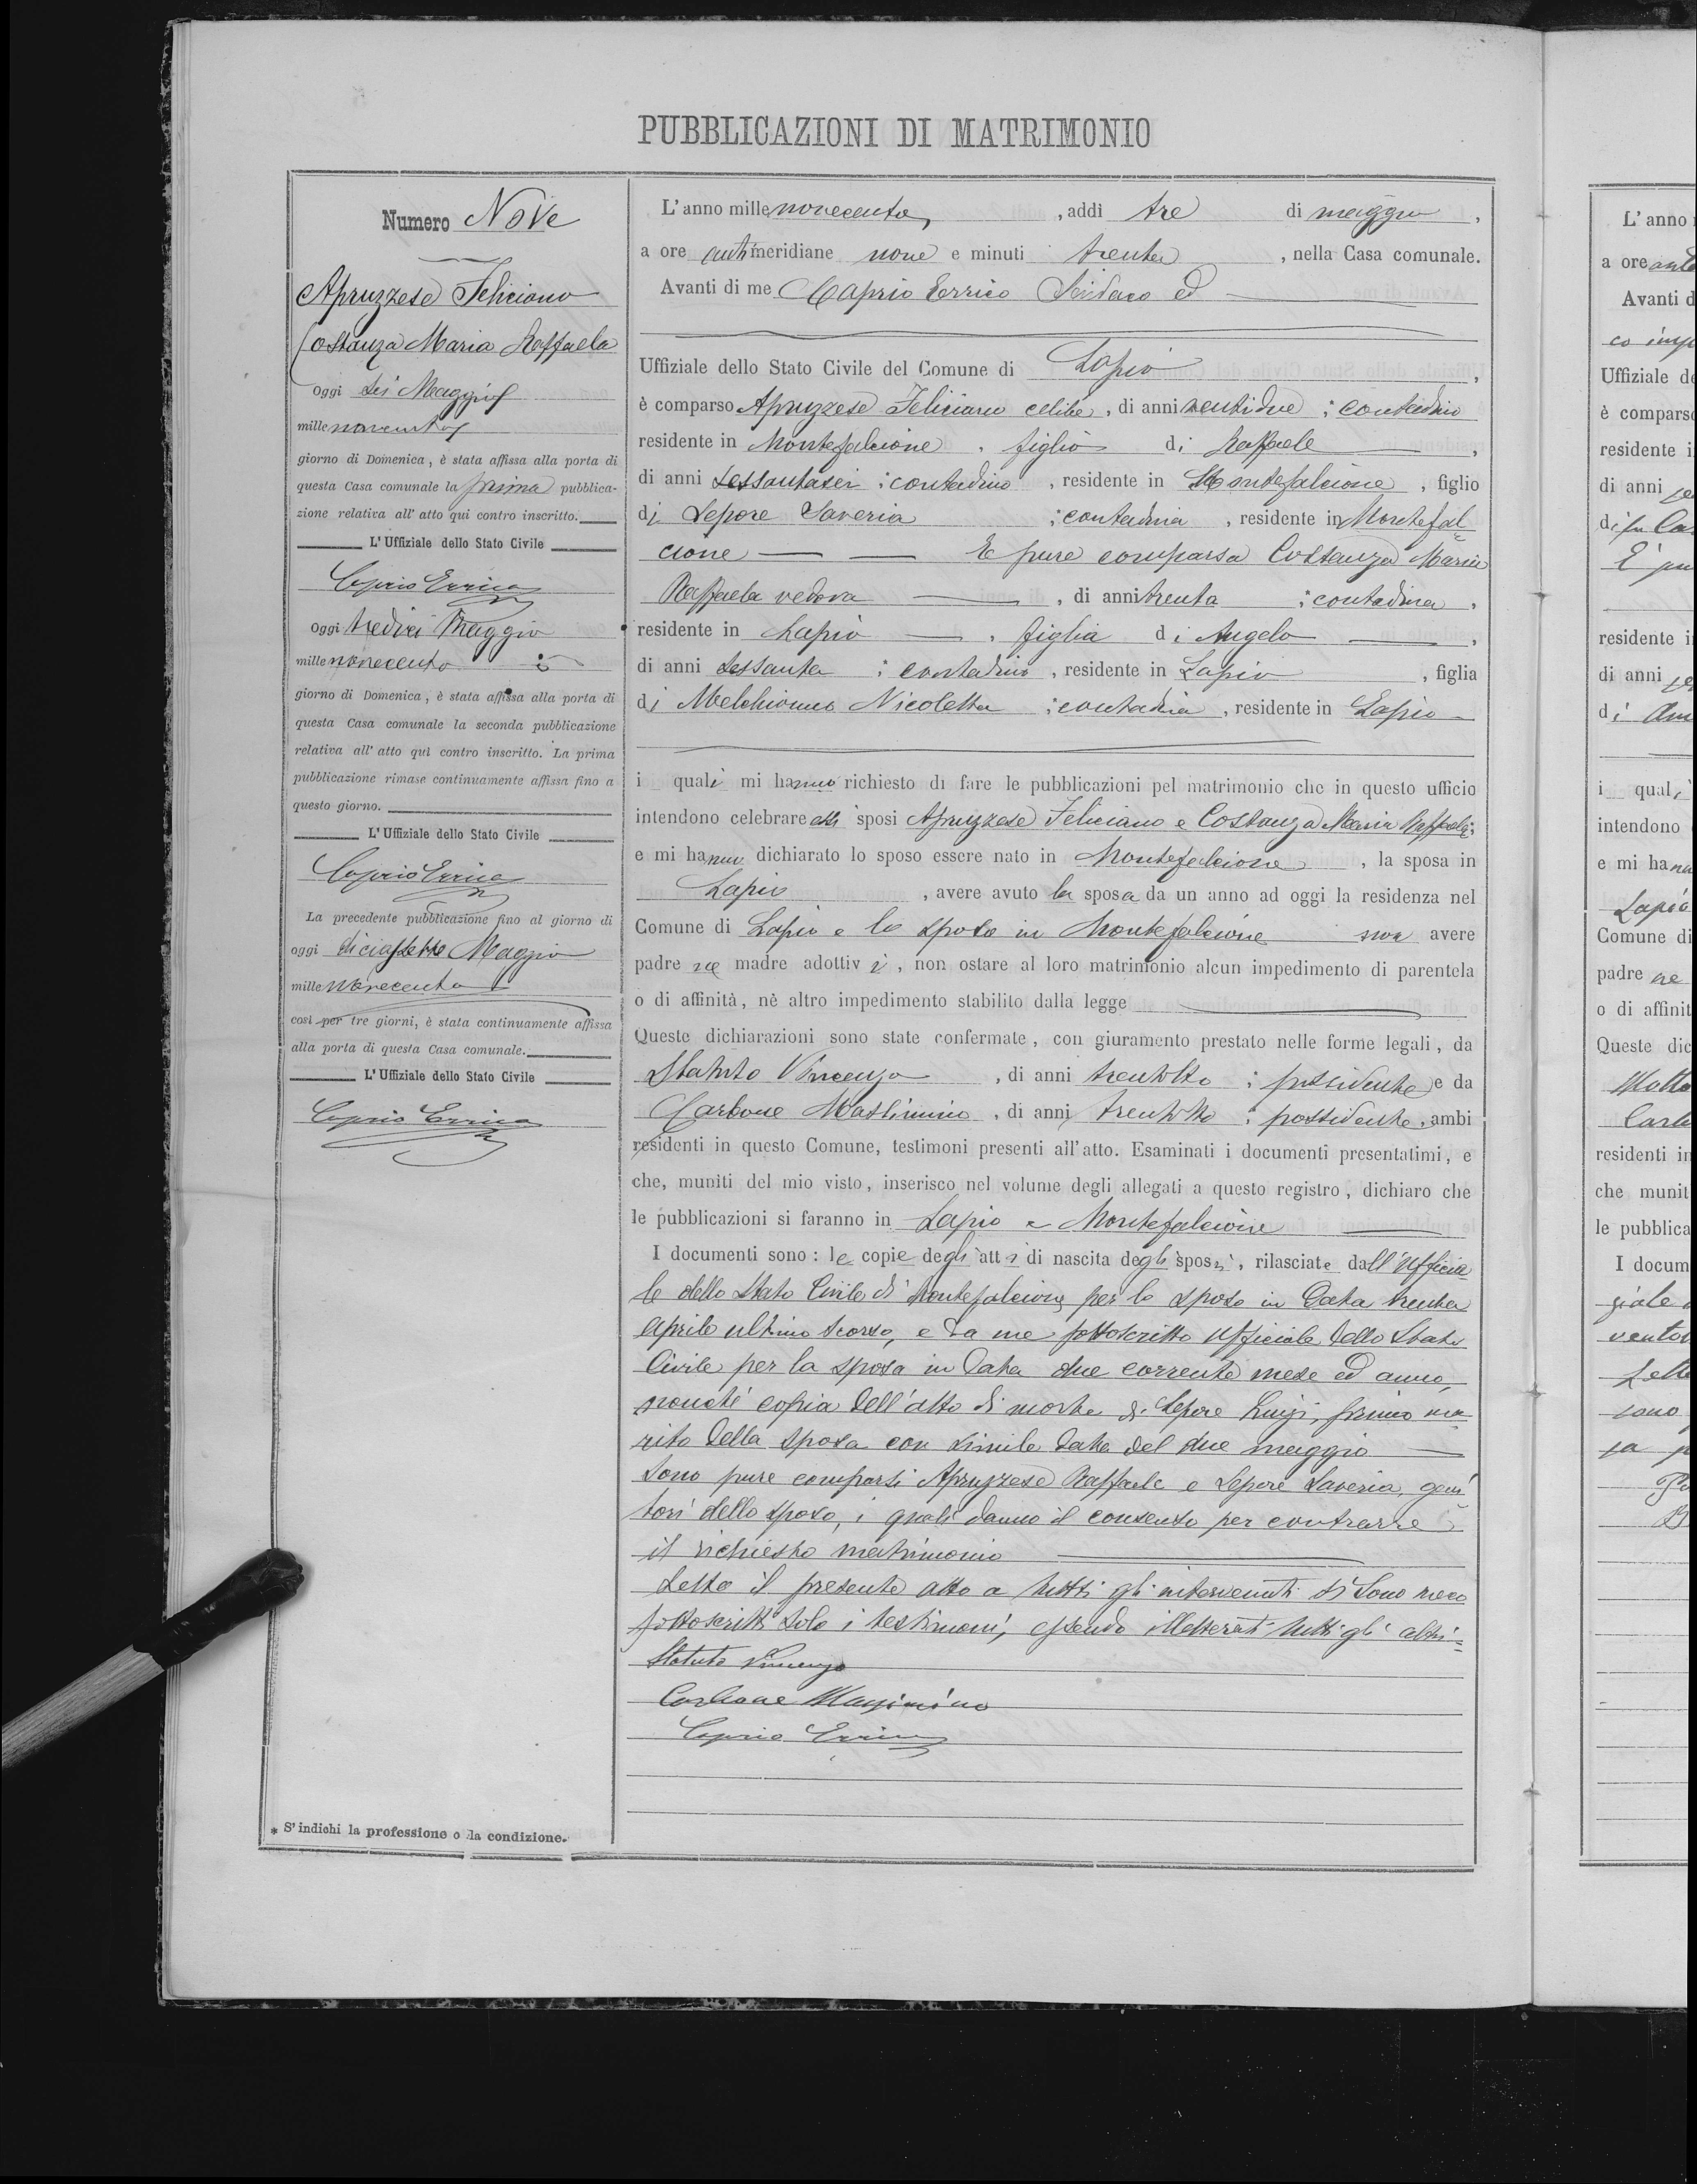 PUBBLICAZIONI DI MATRIMONIO
Numero Nove
Apruzzese Feliciano
Costanza Maria Raffaela
Oggi sei Maggio
mille novecento
giorno di Domenica, è stata affissa alla porta di
questa Casa comunale la prima pubblica-
zione relativa all' atto qui contro inscritto.
L' Uffiziale dello Stato Civile
Caprio Errico
Oggi tredici Maggio
mille novecento
giorno di Domenica, è stata affissa alla porta di
questa Casa comunale la seconda pubblicazione
relativa all' atto quì contro inscritto. La prima
pubblicazione rimase continuamente affissa fino a
questo giorno.
L' Uffiziale dello Stato Civile
Caprio Errico
La precedente pubblicazione fino al giorno di
oggi diciassette Maggio
mille novecento
così per tre giorni, è stata continuamente affissa
alla porta di questa Casa comunale.
L' Uffiziale dello Stato Civile
Caprio Errico
* S' indichi la professione o la condizione.
L' anno mille novecento, , addì tre di maggio ,
a ore antimeridiane nove e minuti trenta , nella Casa comunale.
Avanti di me Caprio Errico Sindaco ed
Uffiziale dello Stato Civile del Comune di Lapio ,
è comparso Apruzzese Feliciano celibe, di anni ventidue ; contadino
residente in Montefalcione , figlio di Raffaele ,
di anni sessantasei ; contadino , residente in Montefalcione , figlio
di Lepore Saveria ; contadina , residente in Montefal=
cione E pure comparsa Costanza Maria
Raffaela vedova , di anni trenta ; contadina ,
residente in Lapio , figlia di Angelo ,
di anni sessanta ; contadino , residente in Lapio , figlia
di Melchionno Nicoletta ; contadina , residente in Lapio
i quali mi hanno richiesto di fare le pubblicazioni pel matrimonio che in questo ufficio
intendono celebrare essi sposi Apruzzese Feliciano e Costanza Maria Raffaela;
e mi hanno dichiarato lo sposo essere nato in Montefalcione , la sposa in
Lapio , avere avuto la sposa da un anno ad oggi la residenza nel
Comune di Lapio e lo sposo in Montefalcione non avere
padre ne madre adottivi, non ostare al loro matrimonio alcun impedimento di parentela
o di affinità, nè altro impedimento stabilito dalla legge
Queste dichiarazioni sono state confermate, con giuramento prestato nelle forme legali, da
Statuto Vincenzo , di anni trentotto ; possidente e da
Carbone Massimino , di anni trentotto ; possidente, ambi
residenti in questo Comune, testimoni presenti all' atto. Esaminati i documenti presentatimi, e
che, muniti del mio visto, inserisco nel volume degli allegati a questo registro, dichiaro che
le pubblicazioni si faranno in Lapio e Montefalcione
I documenti sono: le copie degli atti di nascita degli sposi, rilasciate dall' Ufficia
le dello Stato Civile di Montefalcione per lo sposo in data trenta
aprile ultimo scorso, e da me sottoscritto Ufficiale dello Stato
Civile per la sposa in data due corrente mese ed anno,
nonchè copia dell' atto di morte di Lepore Luigi, primo ma
rito della sposa con simile data del due maggio
Sono pure comparsi Apruzzese Raffaele e Lepore Saveria, geni
tori dello sposo, i quali danno il consenso per contrarre
il richiesto matrimonio
Letto il presente atto a tutti gli intervenuti si sono meco
sottoscritti solo i testimoni, essendo illetterati tutti gli altri=
Statuto Vincenzo
Carbone Massimino
Caprio Errico
L' anno
a ore ante
Avanti d
co imp
Uffiziale de
è comparso
residente i
di anni
di fu Ca
E pu
residente i
di anni
di
i quali
intendono
e mi hann
Lapio
Comune di
padre ne
o di affinit
Queste dic
Carb
residenti in
che munit
le pubblica
I docum
ziale